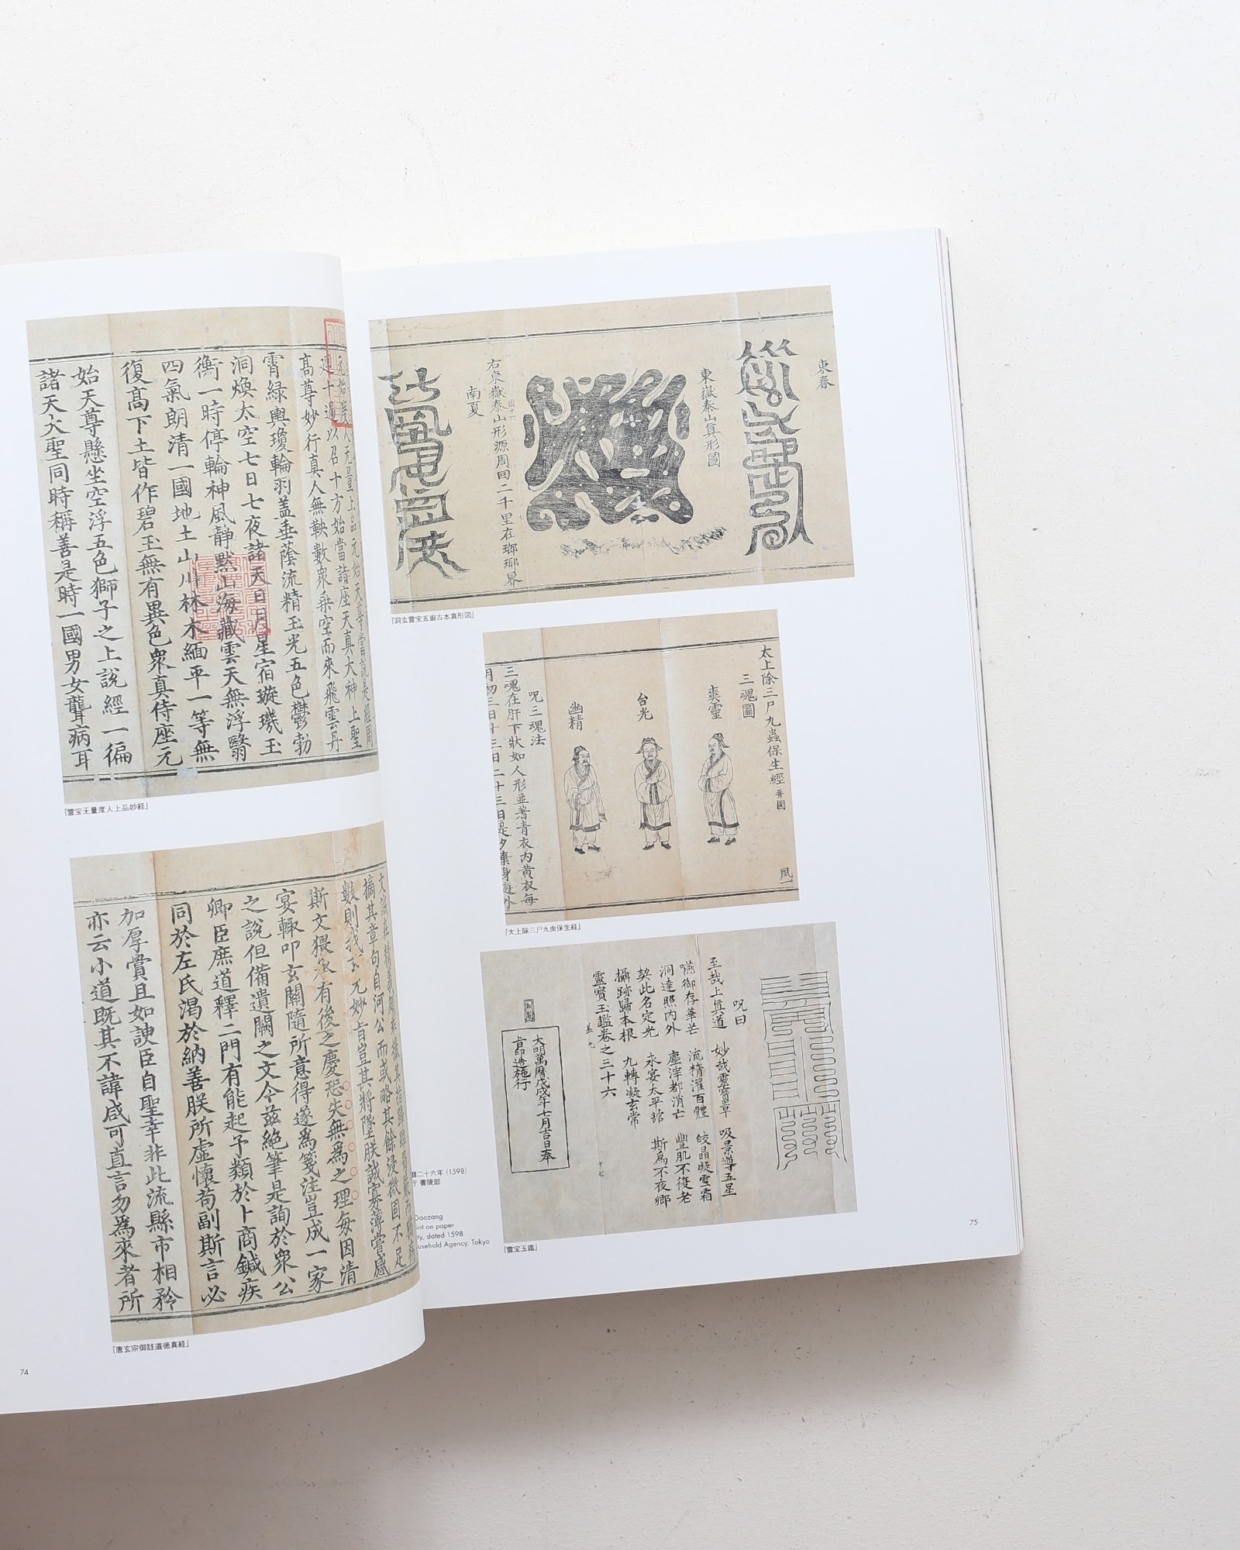 高尊妙行真人無鞅數衆乘空而來飛雲丹
霄緑輿瓊輪羽盖垂蔭流精玉光五色鬱勃
洞煥太空七日七夜諸天日月星宿璇璣玉
衡一時停輪神風静黙山海藏雲天無浮翳
四氣朗清一國地土山川林木緬平一等無
復髙下土皆作碧玉無有異色衆真侍座元
始天尊懸坐空浮五色獅子之上說經一徧
諸天大聖同時稱善是時一國男女聾病耳
「霊宝无量度人上品妙経」
斯文猥承有後之慶恐失無為之理每因清
宴輙叩玄關隨所意得遂為箋注豈成一家
之說但備遺闕之文今茲絶筆是詢於衆公
卿臣庶道釋二門有能起予類於卜商鍼疾
同於左氏渴於納善朕所虛懷苟副斯言必
加厚賞且如諛臣自聖幸非此流縣市相矜
亦云小道既其不諱咸可直言勿為來者所
「唐玄宗御註道徳真経」
74
東春
東嶽泰山真形圖
右東嶽泰山形源周回二千里在瑯琊界
南夏
「洞玄霊宝五嶽古本真形図」
太上除三尸九蟲保生經
三魂圖
爽靈
台光
幽精
呪三魂法
三魂在肝下狀如人形並著青衣内黄衣每
「太上除三尸九虫保生経」
呪曰
至哉上真道 妙哉靈寶章 吸景導五星
嚥御存華芒 流精濯百體 皎晶凝雪霜
洞達照内外 塵滓都消亡 豐肌不復老
契此名定光 永宴太平舘 斯為不夜鄉
攝跡歸本根 九轉凝玄常
靈寶玉鑑卷之三十六
大明萬曆戊戌年七月吉日奉
旨印造施行
「霊宝玉鑑」
暦二十六年 (1598)
庁 書陵部
Daozang
nt on paper
ty, dated 1598
usehold Agency, Tokyo
75